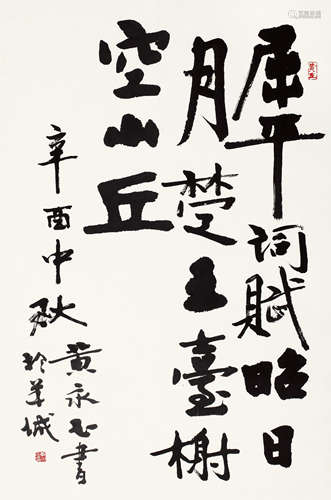 屈平詞賦昭日
月楚王臺榭
空山丘
辛酉中秋
黄永玉書
於羊城